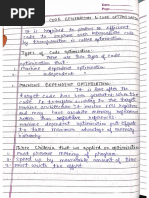 Date :
Page :
CODE GENERATION & CODE OPTIMIZATION
It is required to produce an efficient
code. In machine an intermediate code
by transformation is called optimization
Types of code optimization :
There are two types of code
optimization that :
Machine dependent optimization
independent
MACHINE DEPENDENT OPTIMIZATION :
It is after the
target code has been generated when the
code is transform according to the
Machine architecture. It has CPU registers
and may have absolute memory references
rather than relative references.
Machine dependent optimization put effort
to take maximum advantage of memory
hierarchy.
Three criteria that we applied on optimization
Must preserve meaning of program.
Speed up by measurable amount of time
must worth the effort